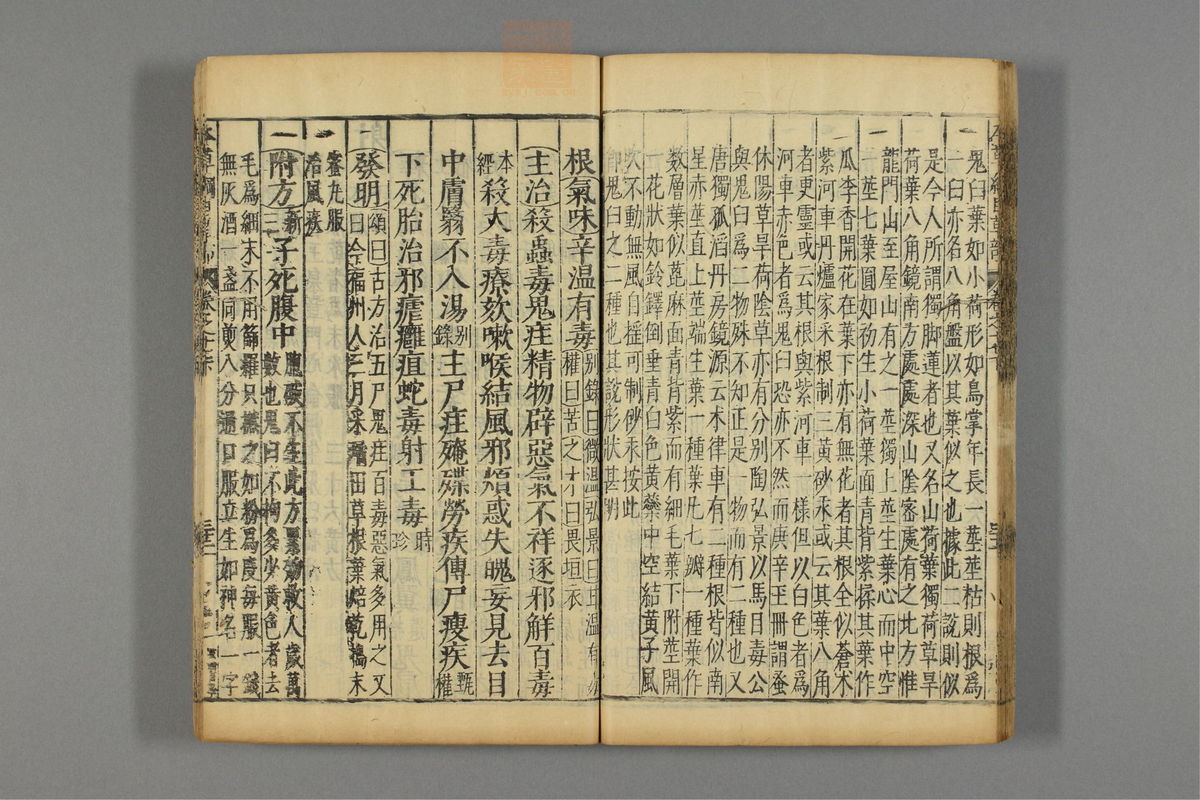 鬼臼葉如小荷形如鳥掌年長一莖莖枯則根爲
一臼亦名八角盤以其葉似之也據此二説則似
是今人所謂獨脚蓮者也又名山荷葉獨荷草旱
荷葉八角鏡南方處處深山陰密處有之北方惟
龍門山至屋山有之一莖獨上莖生葉心而中空
一莖七葉圓如初生小荷葉面青背紫揉其葉作
瓜李香開花在葉下亦有無花者其根全似蒼朮
紫河車丹爐家采根制三黃砂汞或云其葉八角
者更靈或云其根與紫河車一樣但以白色者爲
河車赤色者爲鬼臼恐亦不然而庚辛王冊謂蚤
休陽草旱荷陰草亦有分别陶弘景以馬目毒公
與鬼臼爲二物殊不知正是一物而有二種也又
唐獨孤滔丹房鏡源云朮律車有二種根皆似南
星赤莖直上莖端生葉一種葉凡七瓣一種葉作
數層葉似蓖麻面青背紫而有細毛葉下附莖開
一花狀如鈴鐸倒垂青白色黃蘂中空結黃子風
吹不動無風自摇可制砂汞按此
即鬼臼之二種也其説形狀甚明
根氣味辛温有毒
别錄曰微温弘景曰
權曰苦之才曰畏垣衣
主治殺蟲毒鬼疰精物辟惡氣不祥逐邪解百毒
本經殺大毒療欬嗽喉結風邪煩惑失魄妄見去目
中膚翳不入湯别錄主尸疰殗殜勞疾傳尸瘦疾甄權
下死胎治邪瘧癰疽蛇毒射工毒時珍
發明頌曰古方治五尸鬼疰百毒惡氣多用之又
曰今福州人三月采
草根葉焙乾擣末
蜜丸服
治風疾
附方新三子死腹中
胞破不生此方累効救人歲萬
數也鬼臼不拘多少黃色者去
毛爲細末不用篩羅只撚之如粉爲度每服一錢
無灰酒一盞同煎八分通口服立生如神名一字